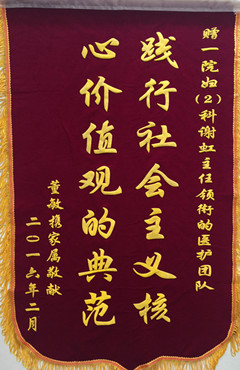 赠一院妇(2)科谢虹主任领衔的医护团队
践行社会主义核
心价值观的典范
董敏携家属敬献
二〇一六年二月